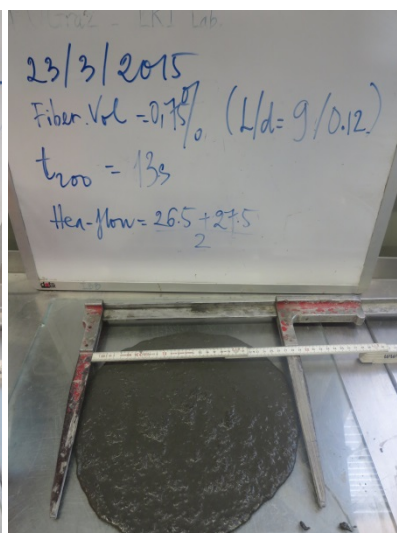 Graz - LKI Lab.
23/3/2015
Fiber.Vol = 0,75% (L/d = 9/0.12)
t200 = 13s
Hea-flow = 26.5 + 27.5
2